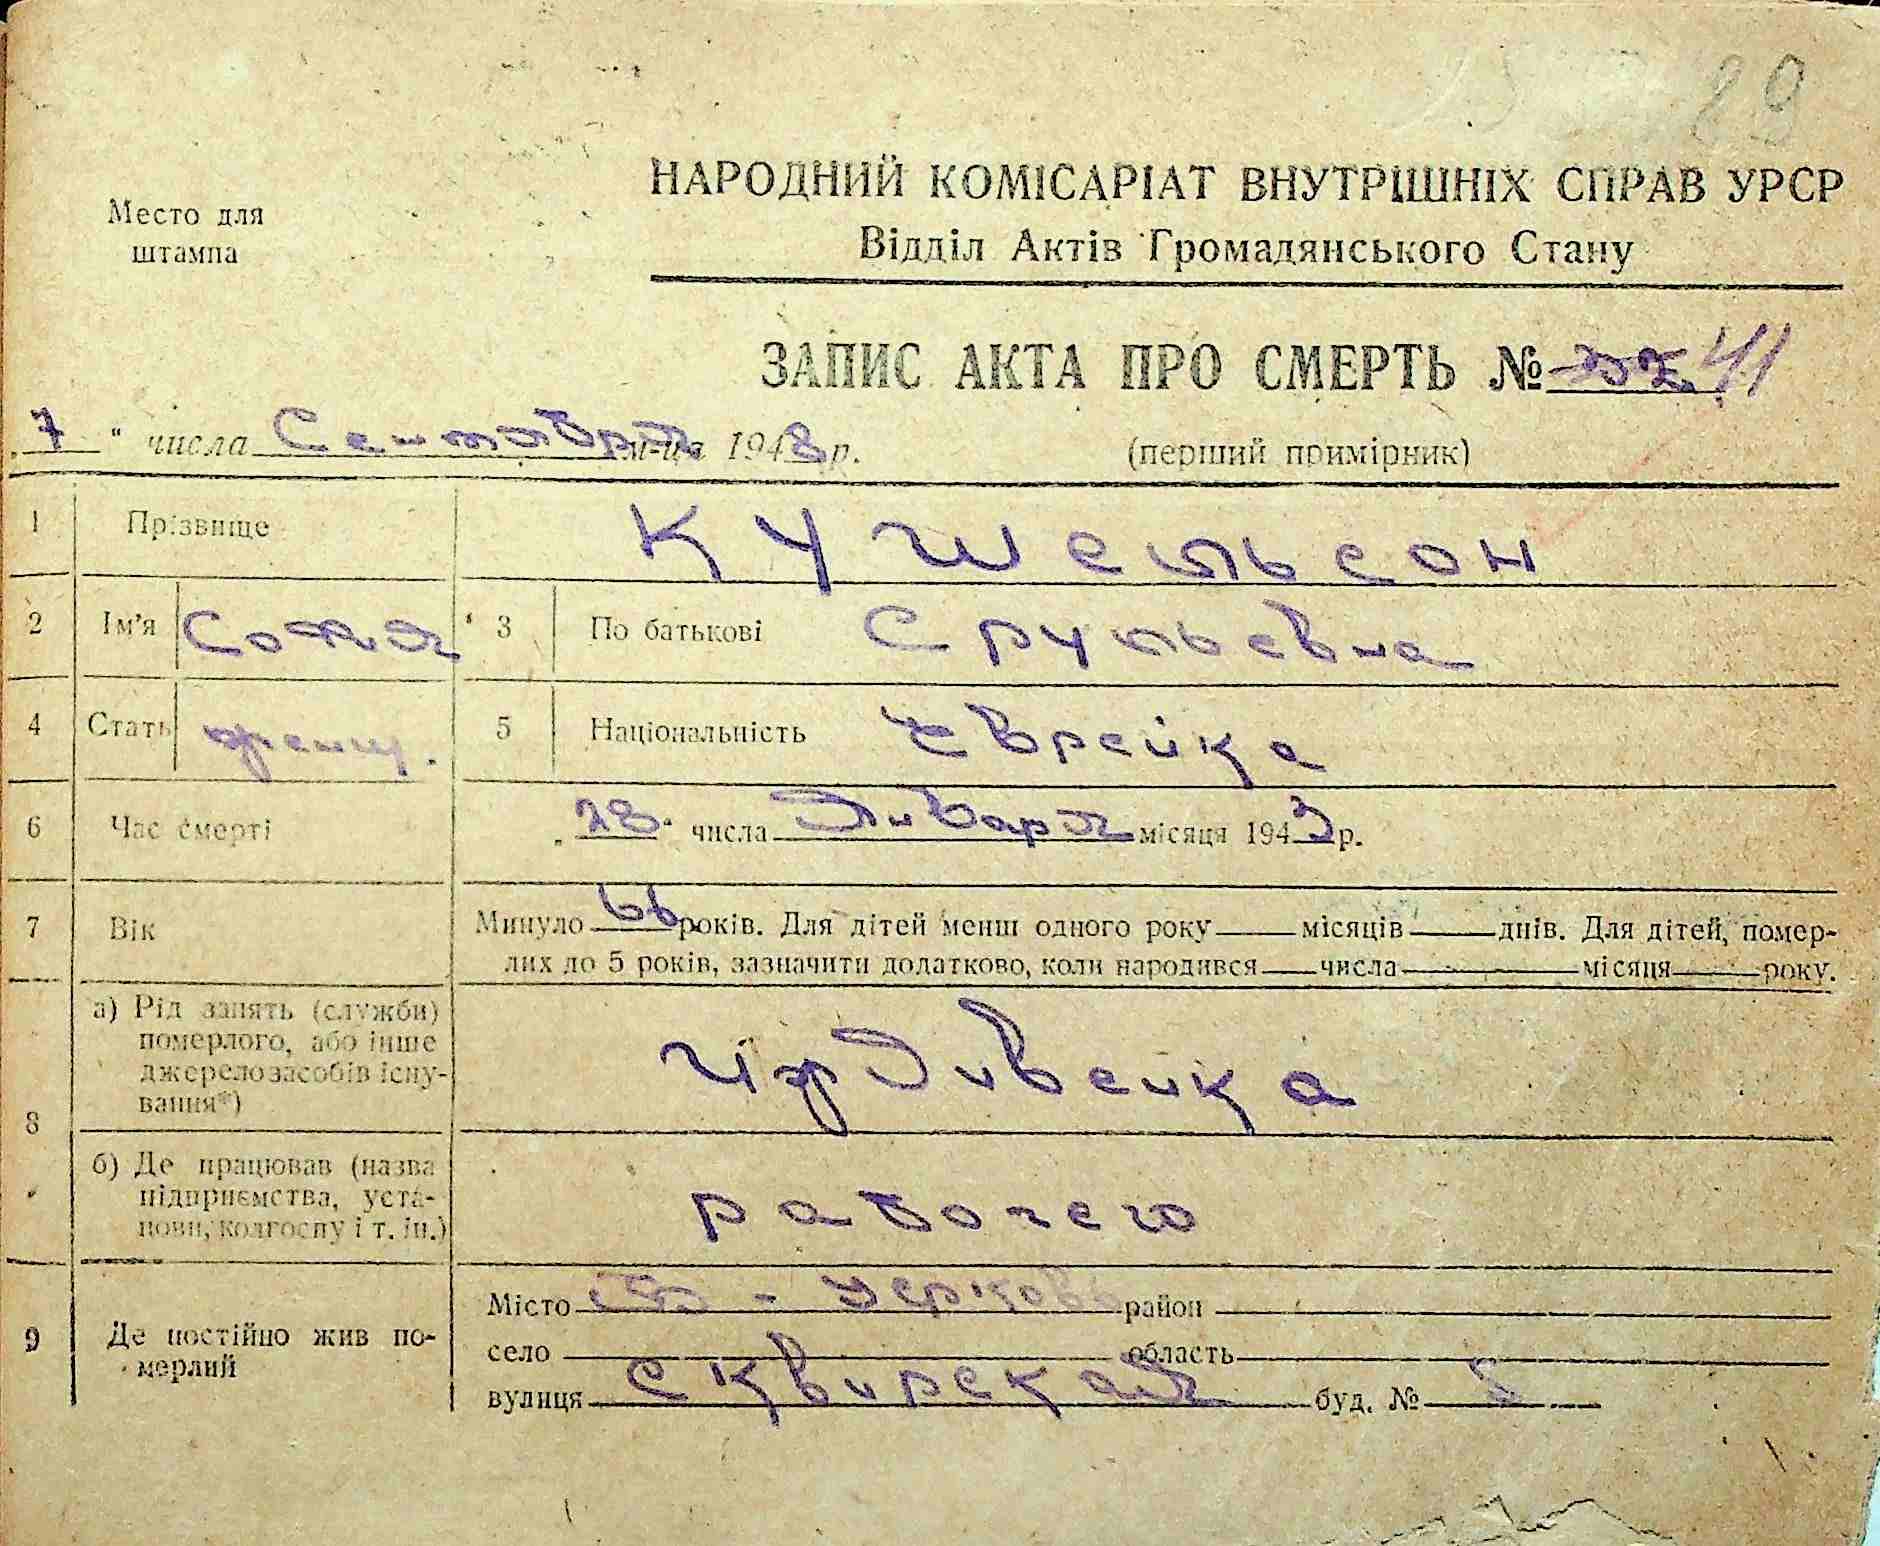 89
Место для
штампа
НАРОДНИЙ КОМІСАРІАТ ВНУТРІШНІХ СПРАВ УРСР
Відділ Актів Громадянського Стану
ЗАПИС АКТА ПРО СМЕРТЬ № 41
„7“ числа Сентября м-ця 1943 р.
(перший примірник)
1 Прізвище Кушельсон
2 Ім'я София 3 По батькові Срульевна
4 Стать женщ. 5 Національність Еврейка
6 Час смерті „28“ числа Января місяця 1943 р.
7 Вік Минуло 66 років. Для дітей менш одного року місяців днів. Для дітей, помер-
лих до 5 років, зазначити додатково, коли народився числа місяця року.
8 а) Рід занять (служби)
померлого, або інше
джерело засобів існу-
вання*)
Иждивенка
б) Де працював (назва
підприємства, уста-
нови, колгоспу і т. ін.)
рабочего
9 Де постійно жив по-
мерлий
Місто Б-Церковь район
село область
вулиця Сквирская буд. № 5